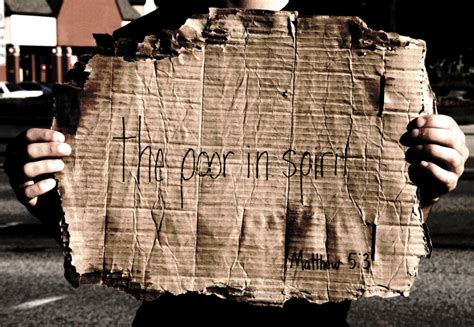 the poor in spirit
Matthew 5:3